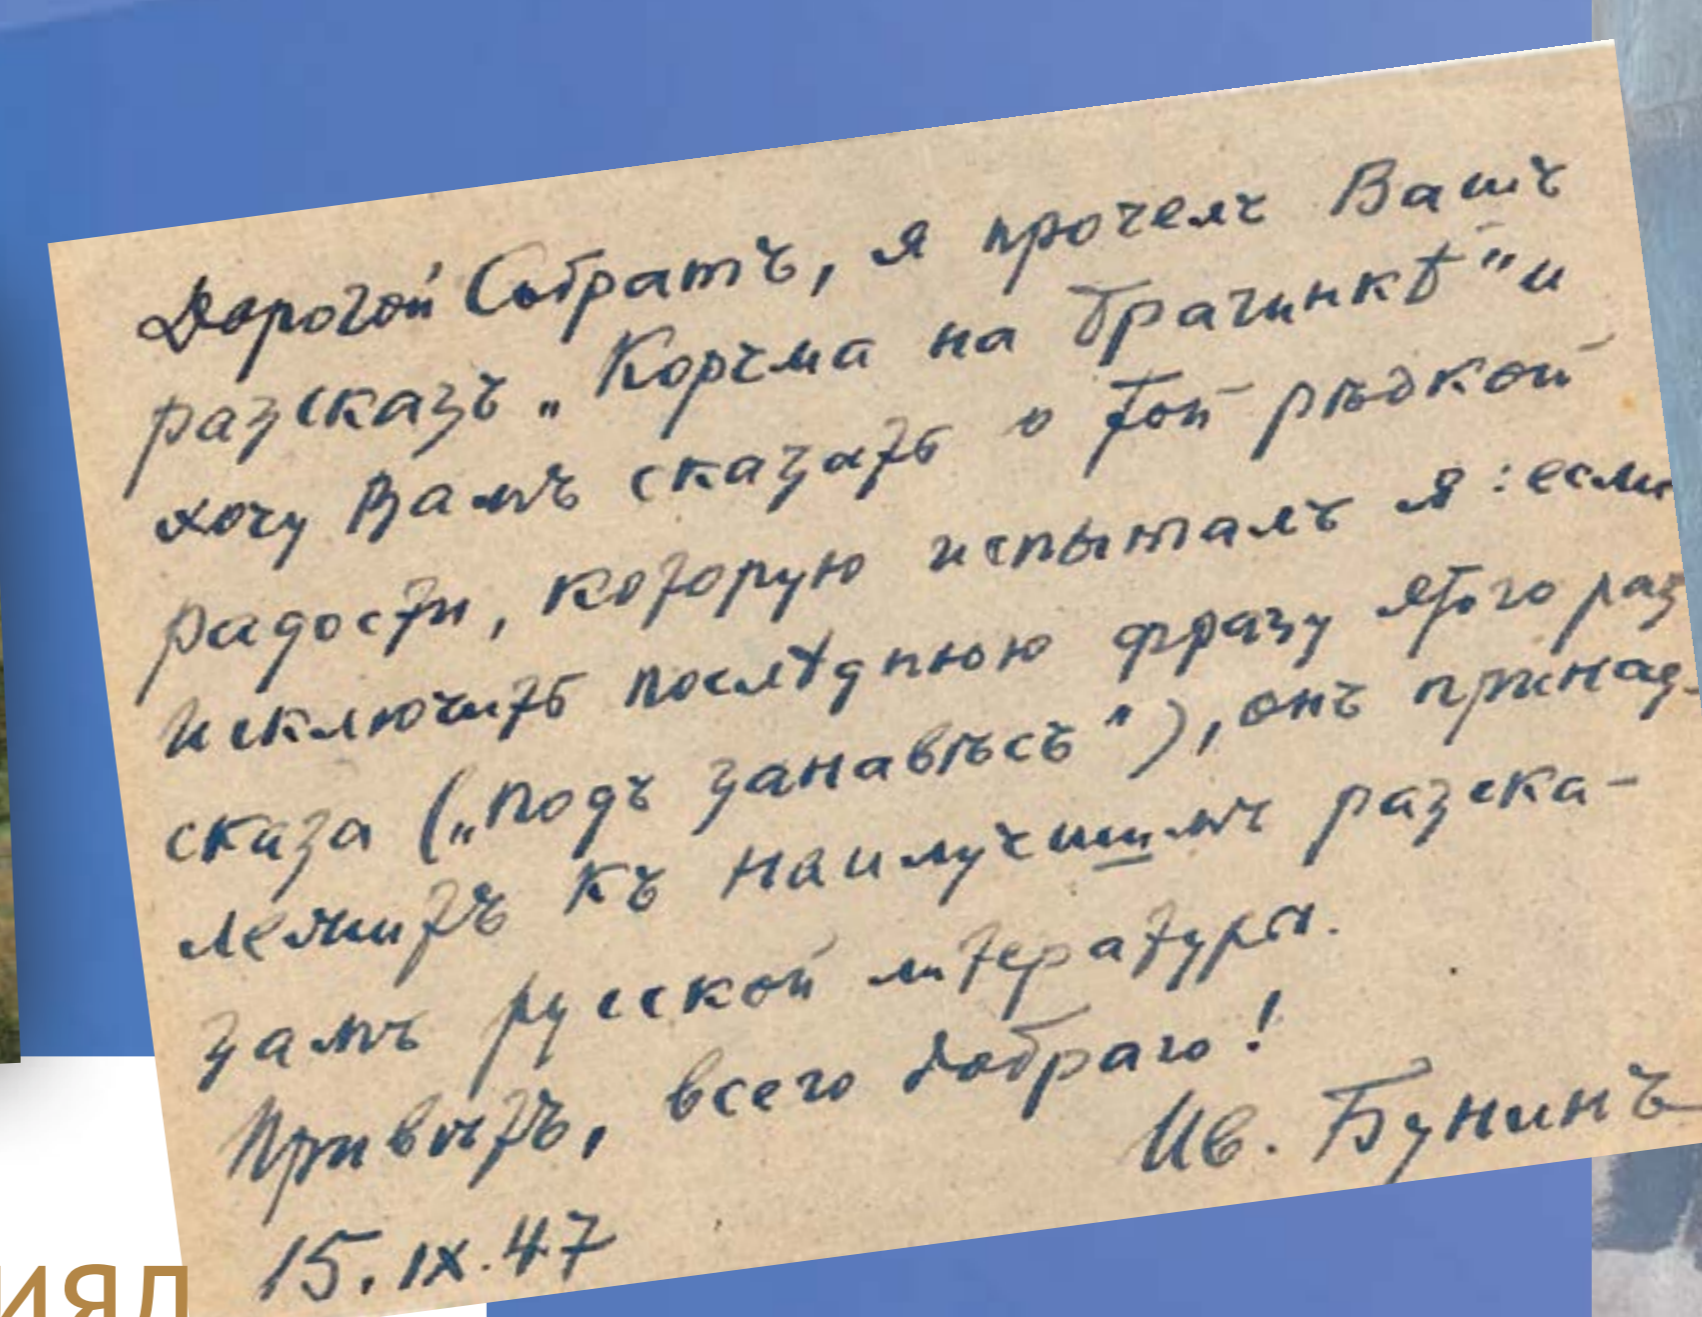 Дорогой Собратъ, я прочелъ Вашъ
разсказъ „Корчма на Брагинкѣ" и
хочу Вамъ сказать о той рѣдкой
радости, которую испыталъ я: если
исключить послѣднюю фразу этого раз
сказа („подъ занавѣсъ"), онъ принад-
лежитъ къ наилучшимъ разска-
замъ русской литературы.
Привѣтъ, всего добраго!
Ив. Бунинъ
15.IX.47
ИЯЛ